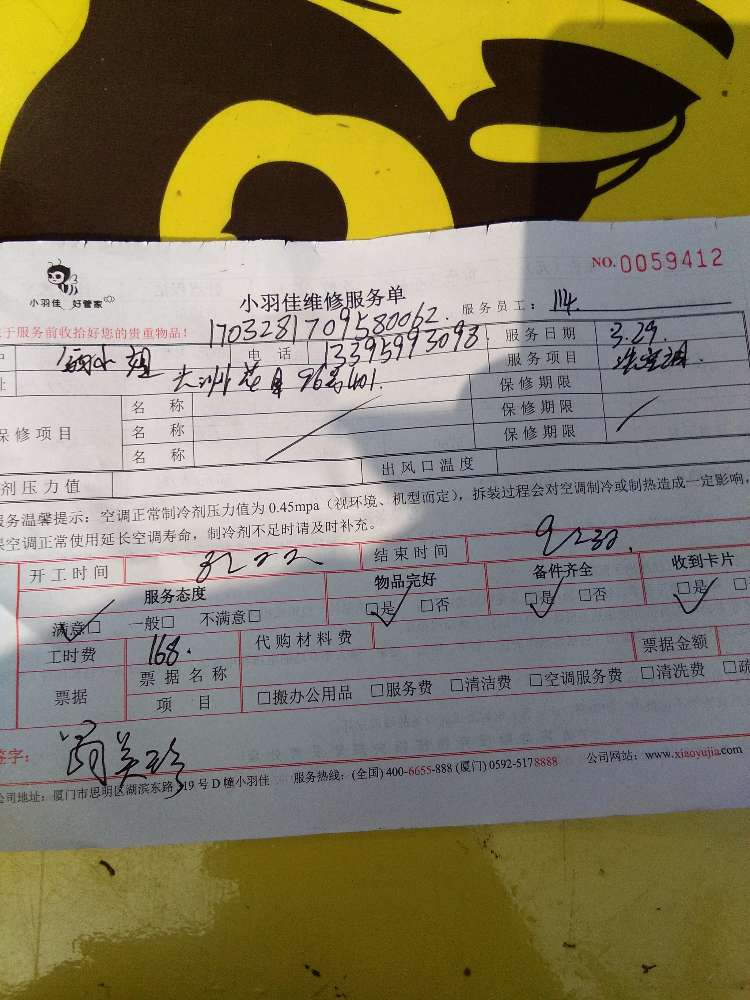 NO.0059412
小羽佳 好管家
小羽佳维修服务单
服务员工： 114.
于服务前收拾好您的贵重物品！
1703281709580062.
电 话 13395993098. 服务日期 3.29.
址 96号401. 服务项目 洗空调.
保修项目 名 称 保修期限
名 称 保修期限
名 称 保修期限
剂压力值 出风口温度
服务温馨提示：空调正常制冷剂压力值为 0.45mpa（视环境、机型而定），拆装过程会对空调制冷或制热造成一定影响，
空调正常使用延长空调寿命，制冷剂不足时请及时补充。
开工时间 结束时间
服务态度 物品完好 备件齐全 收到卡片
满意□ 一般□ 不满意□ □是 □否 □是 □否 □是 □
工时费 168. 代购材料费
票据 票据名称 票据金额
项 目 □搬办公用品 □服务费 □清洁费 □空调服务费 □清洗费 □疏
签字：
公司地址：厦门市思明区湖滨东路 319 号 D 幢小羽佳 服务热线：(全国) 400-6655-888 (厦门) 0592-5178888 公司网站：www.xiaoyujia.com